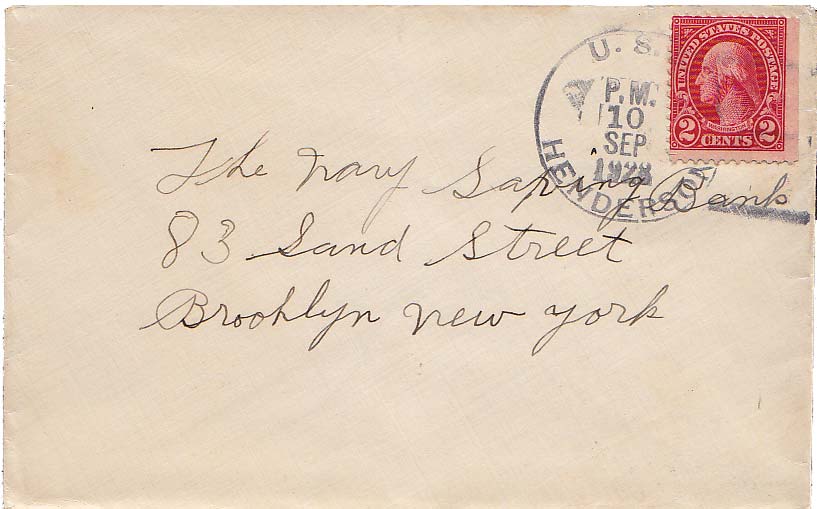 U. S.
P.M.
10
SEP
1928
HENDERSON
UNITED STATES POSTAGE
WASHINGTON
2 CENTS 2
The Navy Saving Bank
83 Sand Street
Brooklyn New York